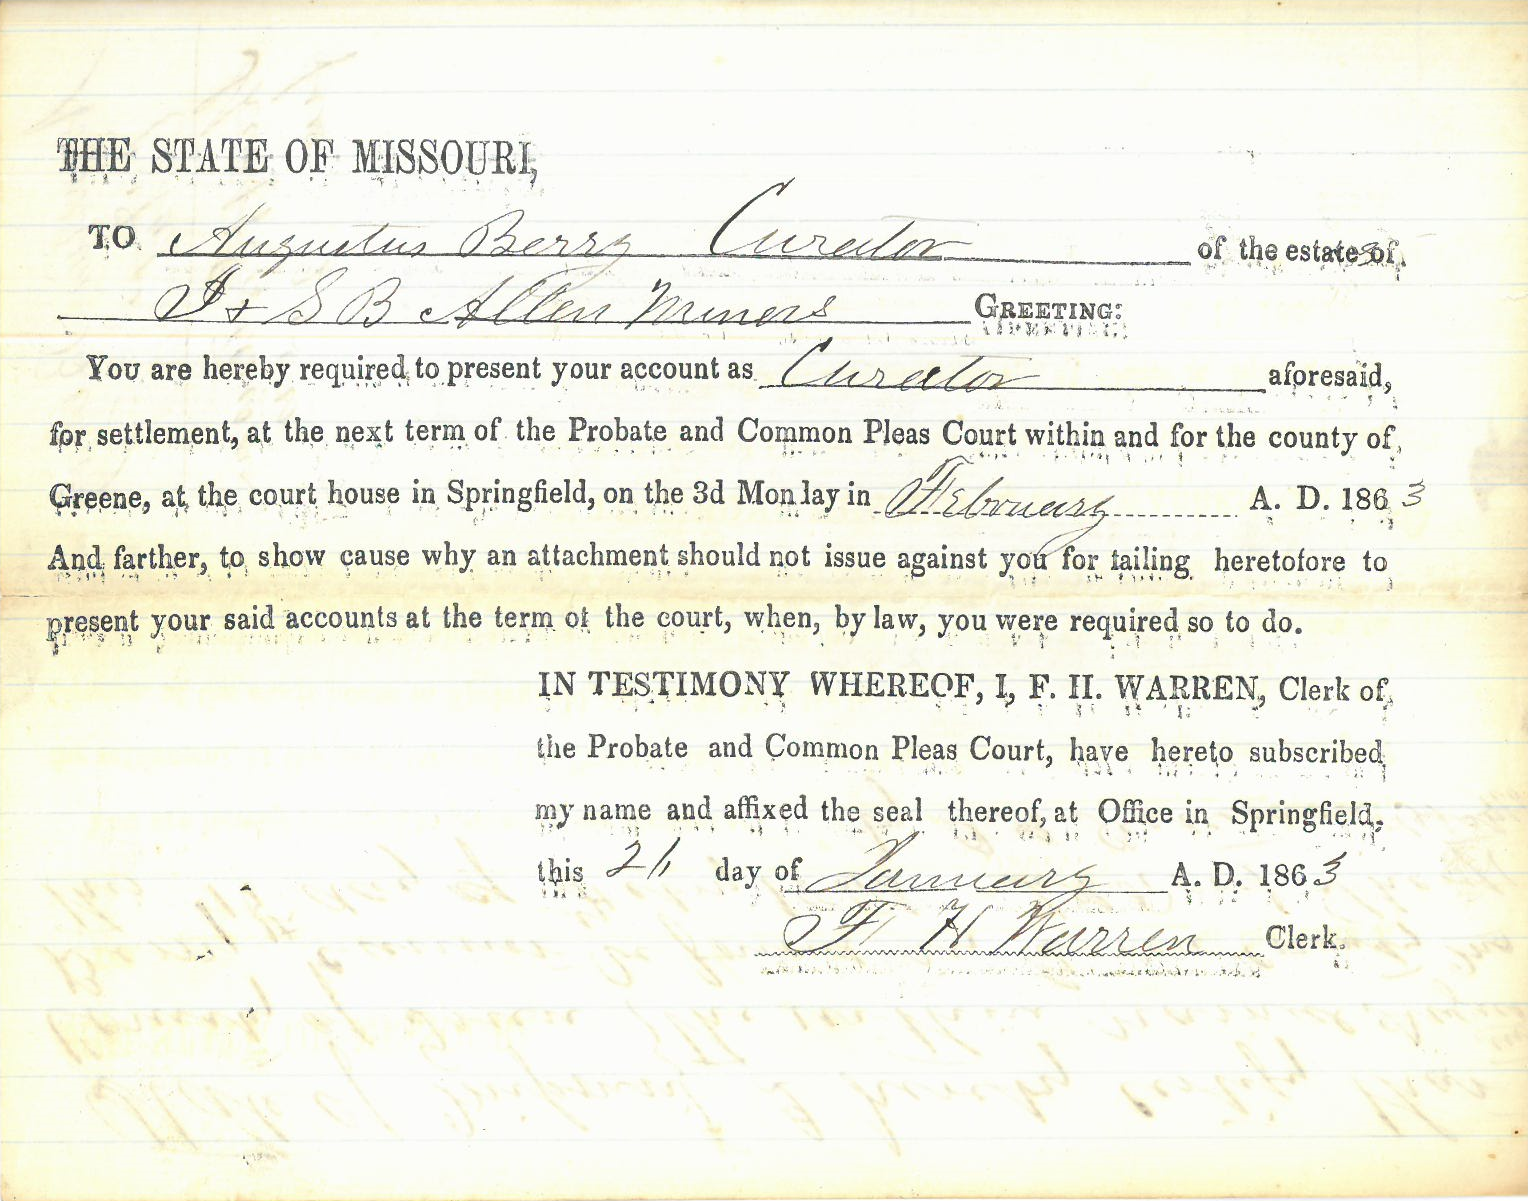 THE STATE OF MISSOURI,
TO Augustus Berry Curator of the estates of
J & S B Allen Minors GREETING:
You are hereby required to present your account as Curator aforesaid,
for settlement, at the next term of the Probate and Common Pleas Court within and for the county of
Greene, at the court house in Springfield, on the 3d Monday in February A. D. 1863
And farther, to show cause why an attachment should not issue against you for failing heretofore to
present your said accounts at the term of the court, when, by law, you were required so to do.
IN TESTIMONY WHEREOF, I, F. H. WARREN, Clerk of
the Probate and Common Pleas Court, have hereto subscribed
my name and affixed the seal thereof, at Office in Springfield,
this day of January A. D. 1863
F H Warren Clerk.